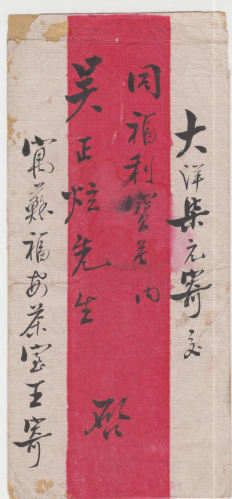 大洋柒元寄交
同福利寶号内
吴正炫先生 啟
寓蘇福安茶室王寄